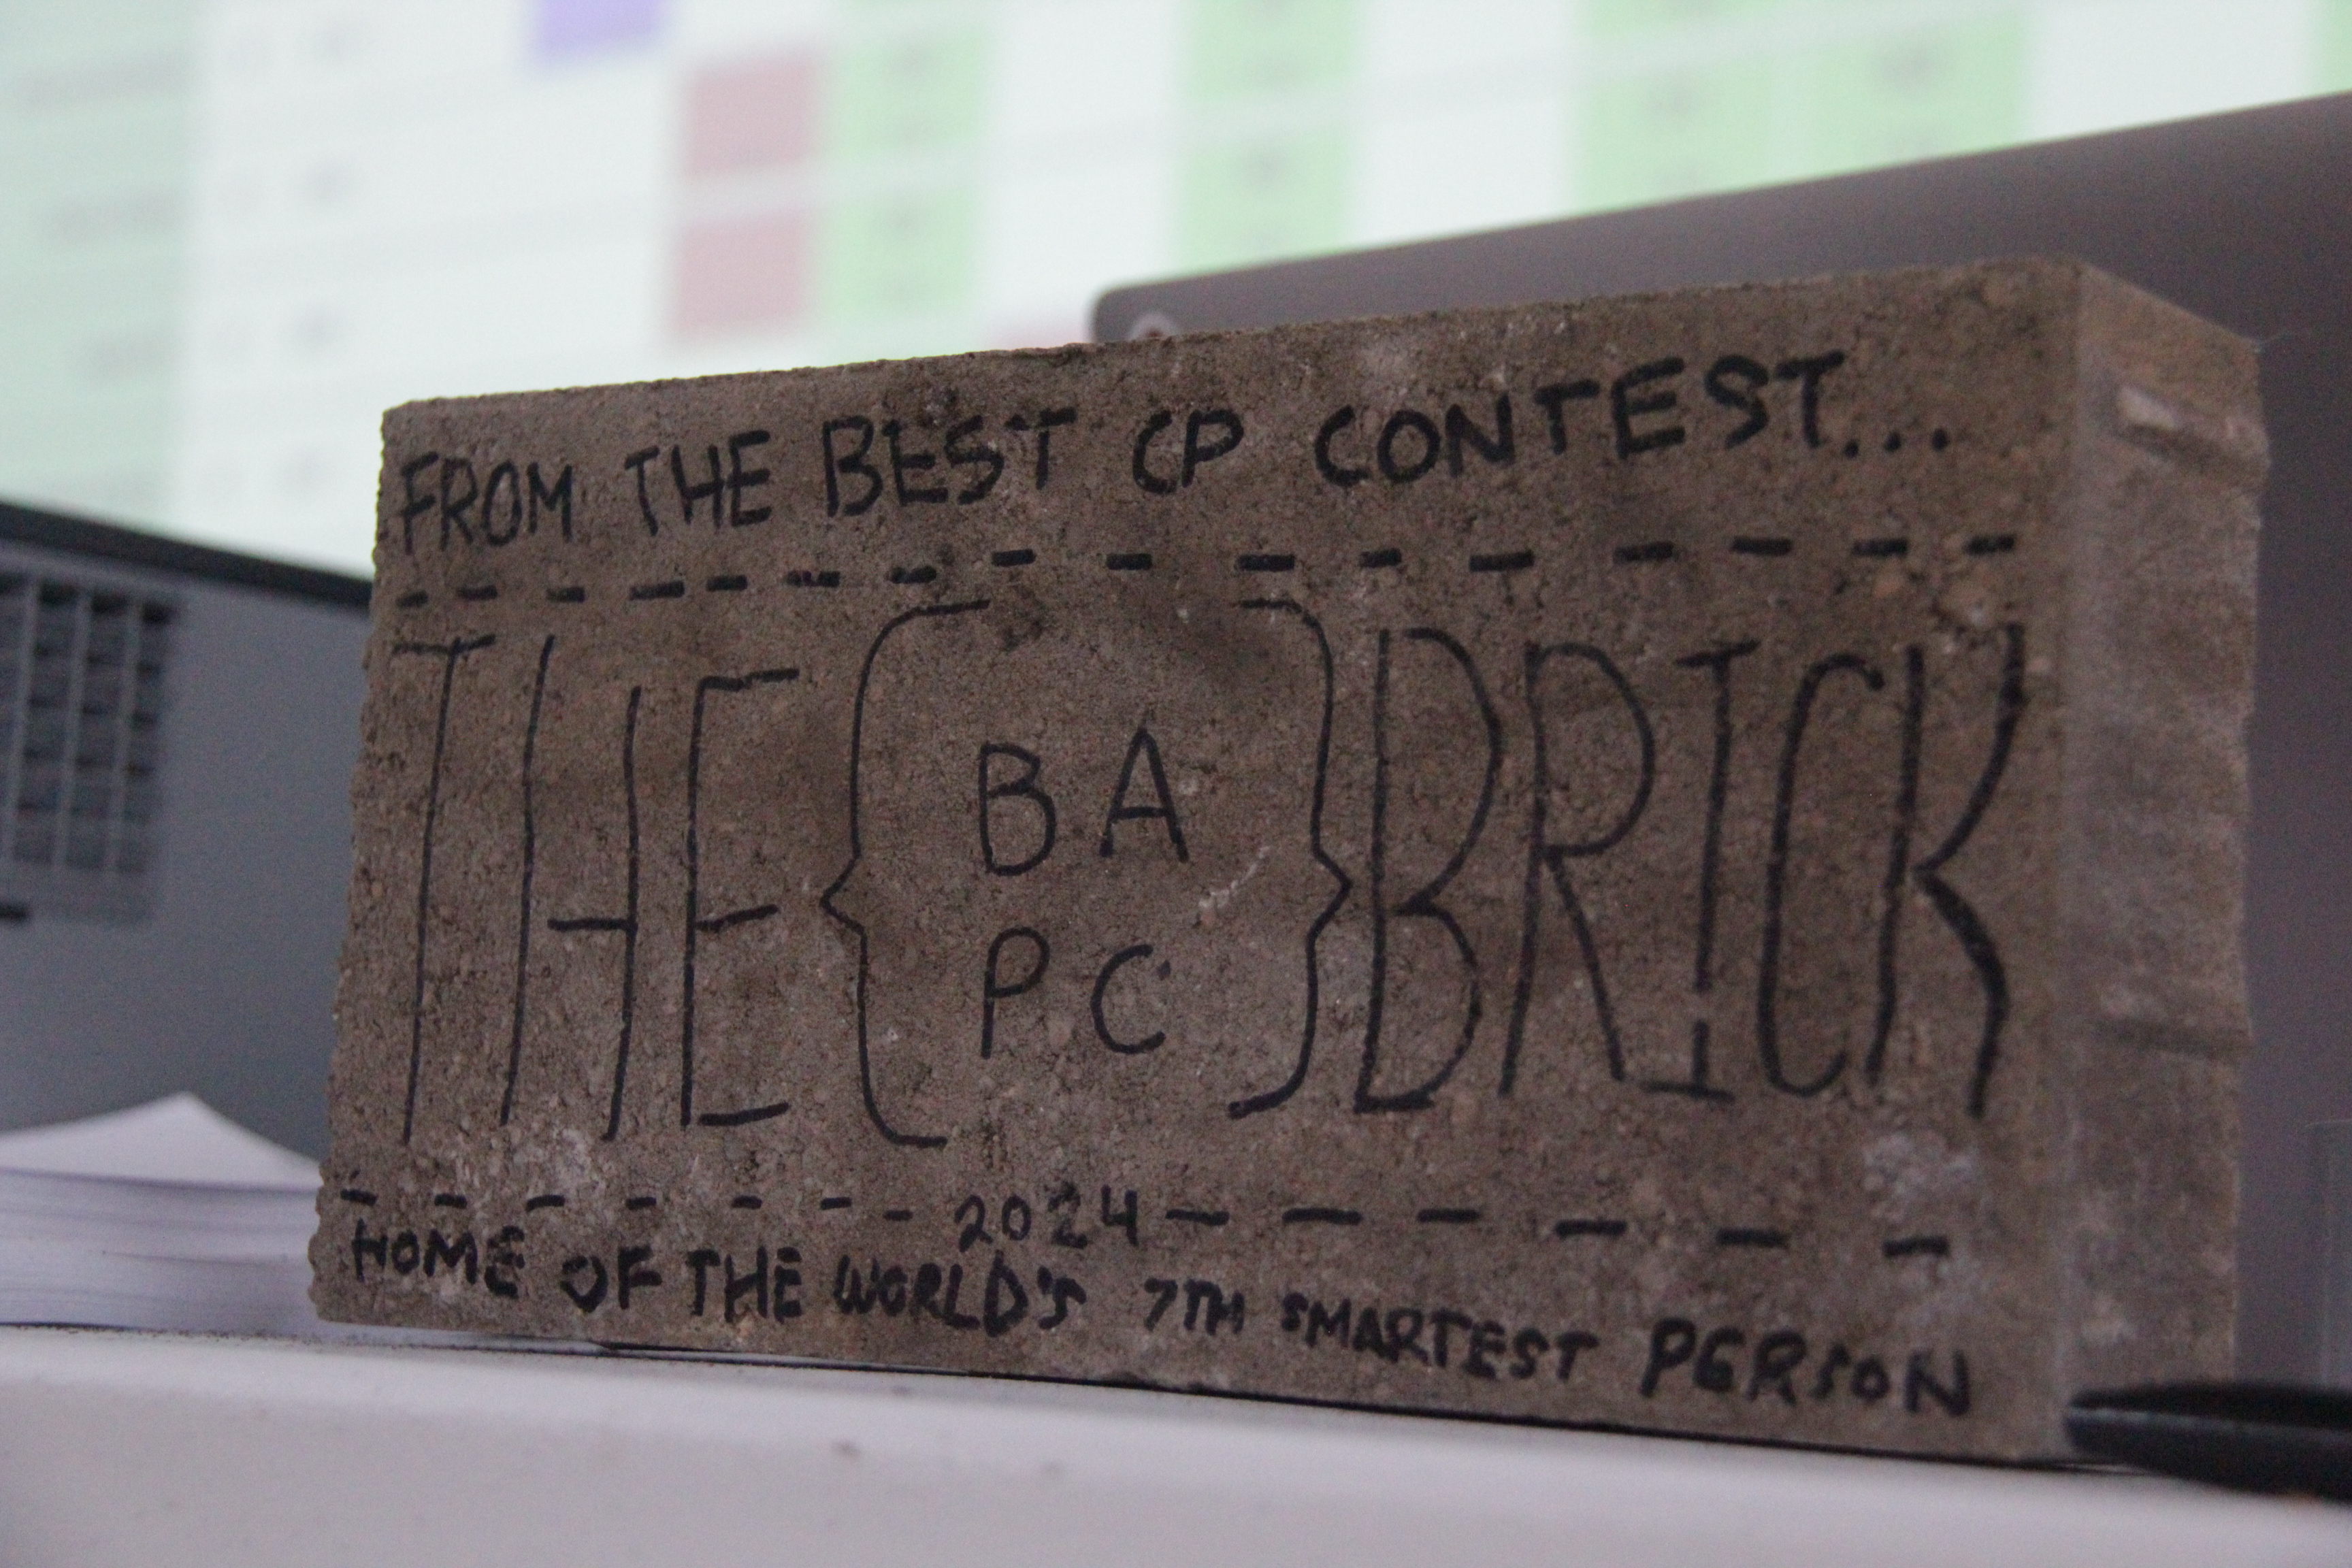 FROM THE BEST CP CONTEST...
THE { BA PC } BRICK
2024
HOME OF THE WORLD'S 7TH SMARTEST PERSON